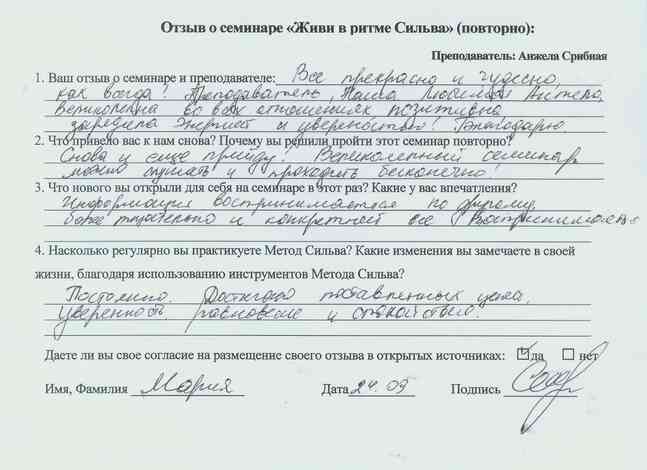 Отзыв о семинаре «Живи в ритме Сильва» (повторно):
Преподаватель: Анжела Срибная
1. Ваш отзыв о семинаре и преподавателе: Все прекрасно и чудесно,
как всегда! Преподаватель, Наша Любимая Анжела,
Великолепна во всех отношениях позитивна
зарядила Энергией и уверенностью! Благодарю.
2. Что привело вас к нам снова? Почему вы решили пройти этот семинар повторно?
Снова и еще прийду! Великолепный семинар
можно слушать и проходить бесконечно!
3. Что нового вы открыли для себя на семинаре в этот раз? Какие у вас впечатления?
Информация воспринимается по другому,
более тщательно и конкретной все
4. Насколько регулярно вы практикуете Метод Сильва? Какие изменения вы замечаете в своей
жизни, благодаря использованию инструментов Метода Сильва?
Постоянно. поставленных
Уверенность равновесие и спокойствие!
Даете ли вы свое согласие на размещение своего отзыва в открытых источниках: да нет
Имя, Фамилия Мария Дата 24.09 Подпись